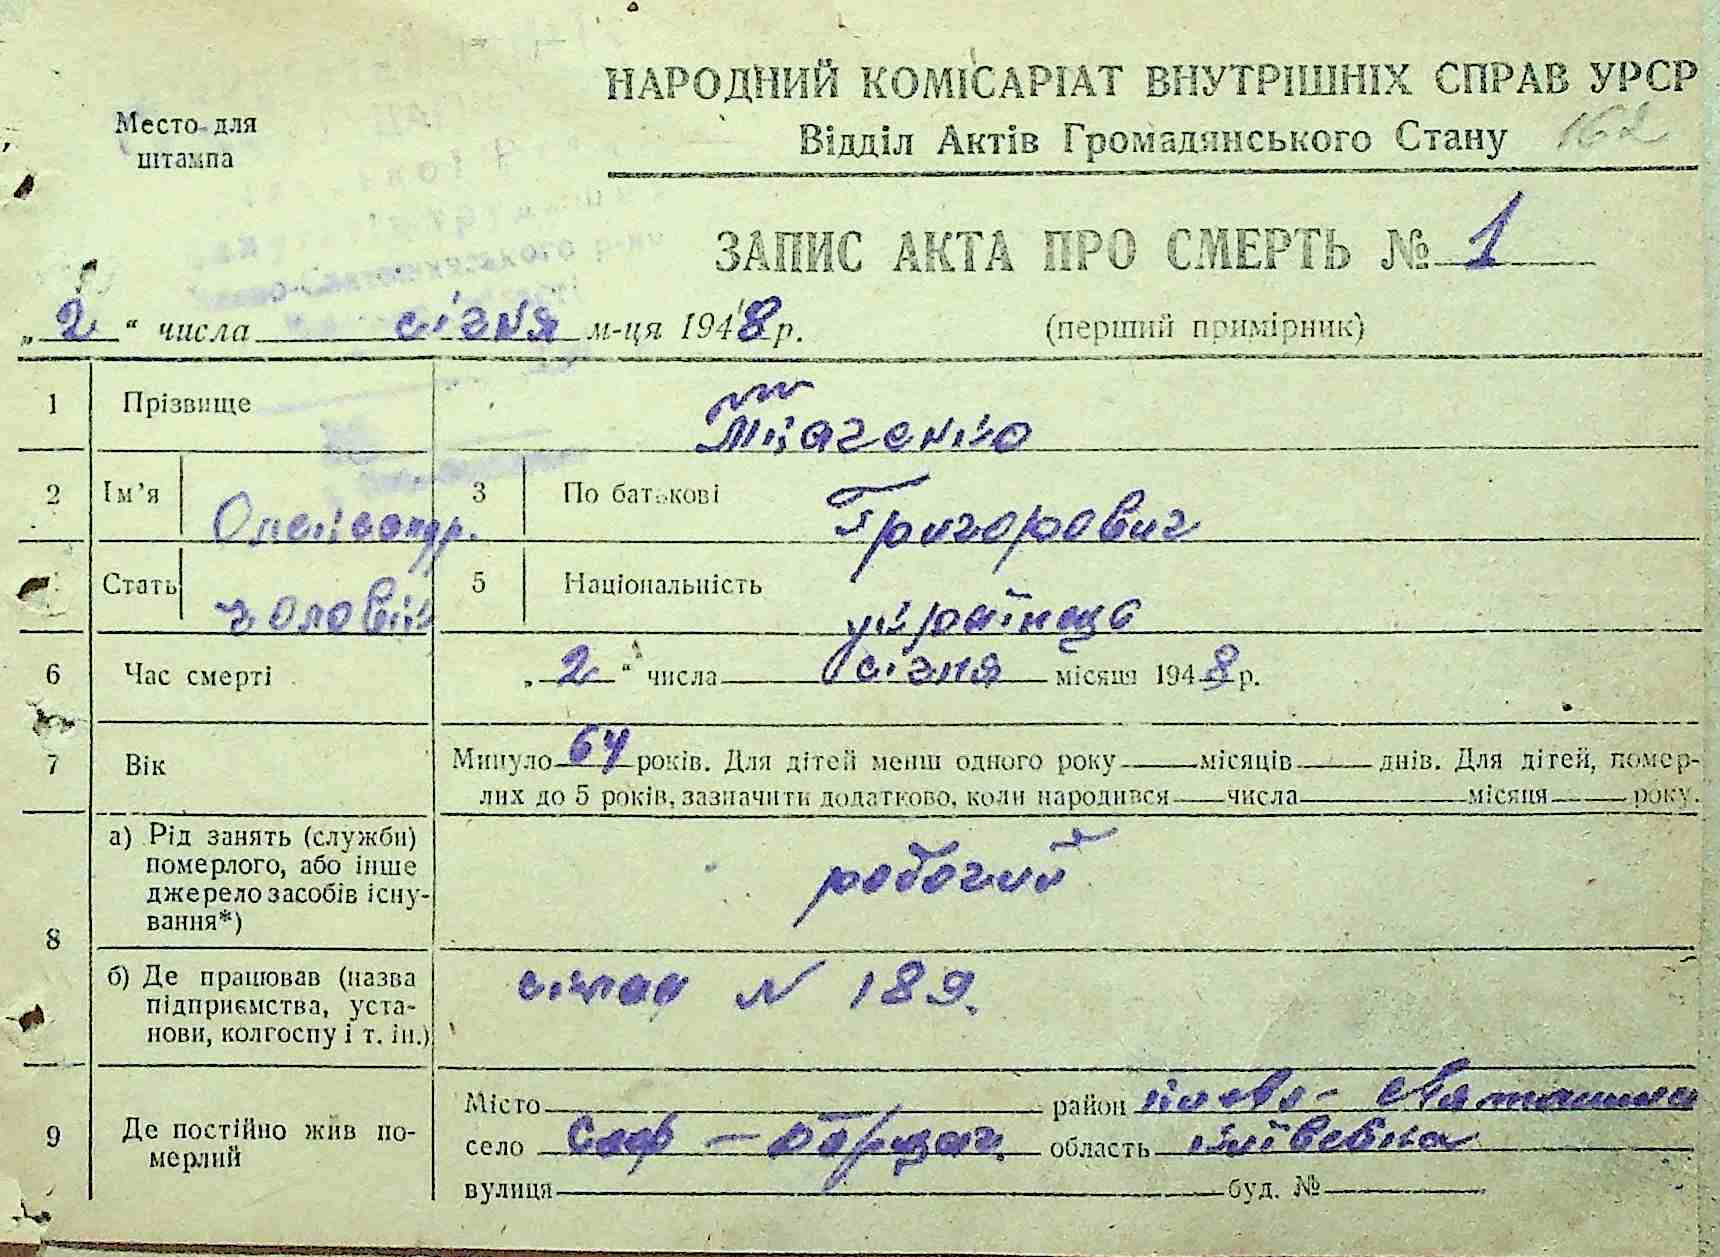 НАРОДНИЙ КОМІСАРІАТ ВНУТРІШНІХ СПРАВ УРСР
Место для
штампа
Відділ Актів Громадянського Стану 162
ЗАПИС АКТА ПРО СМЕРТЬ № 1
„ 2 “ числа січня м-ця 1948 р. (перший примірник)
1 Прізвище Ткаченко
2 Ім’я Олександр. 3 По батькові Григорович
Стать чоловік 5 Національність українець
6 Час смерті „ 2 “ числа січня місяця 1948 р.
7 Вік Минуло 64 років. Для дітей менш одного року — місяців — днів. Для дітей, помер-
лих до 5 років, зазначити додатково, коли народився — числа — місяця — року.
8 а) Рід занять (служби)
померлого, або інше
джерело засобів існу-
вання*)
робочий
б) Де працював (назва
підприємства, уста-
нови, колгоспу і т. ін.)
N 189.
9 Де постійно жив по-
мерлий
Місто — район Києво-Святошина
село Соф-Борщаг. область Київська
вулиця — буд. № —